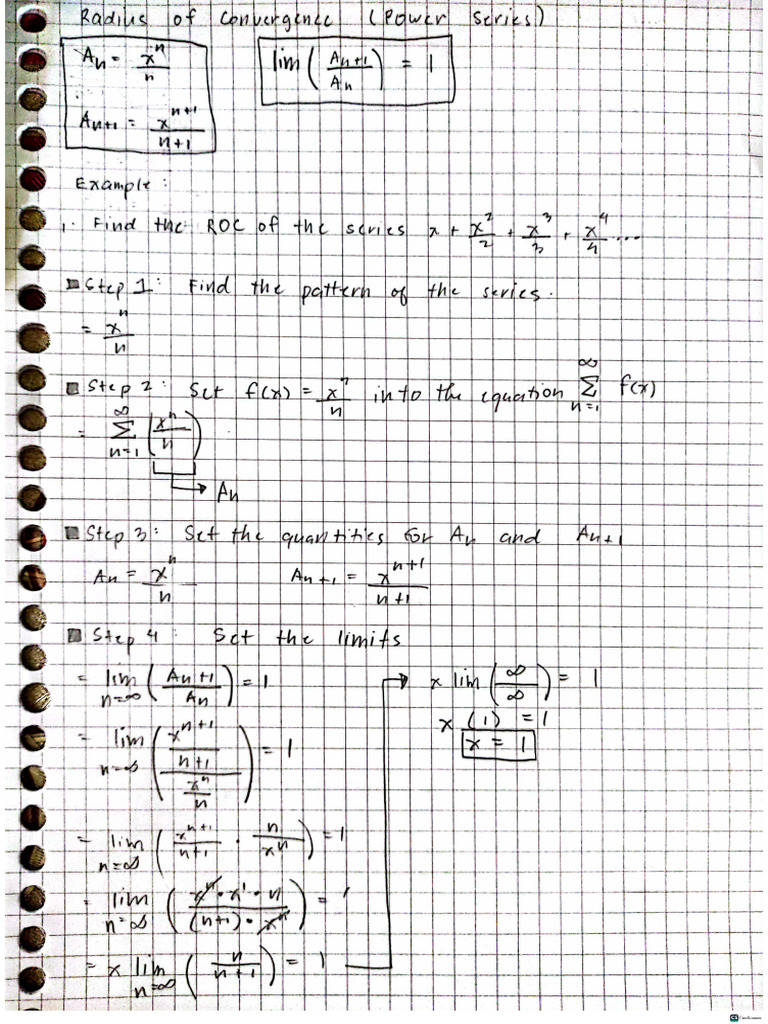 Radius of Convergence (Power Series)
An = x^n/n
lim (An+1/An) = 1
An+1 = x^(n+1)/(n+1)
Example:
1. Find the ROC of the series x + x^2/2 + x^3/3 + x^4/4 ...
Step 1: Find the pattern of the series.
= x^n/n
Step 2: Set f(x) = x^n/n into the equation ∞Σn=1 f(x)
= ∞Σn=1 (x^n/n)
→ An
Step 3: Set the quantities for An and An+1
An = x^n/n An+1 = x^(n+1)/(n+1)
Step 4: Set the limits
= lim n=∞ (An+1/An) = 1
= lim n=∞ ((x^(n+1)/(n+1))/(x^n/n)) = 1
= lim n=∞ (x^(n+1)/(n+1) · n/x^n) = 1
= lim n=∞ (x^n · x^1 · n/((n+1) · x^n)) = 1
= x lim n=∞ (n/(n+1)) = 1
→ x lim (∞/∞) = 1
x (1) = 1
x = 1
CS CamScanner